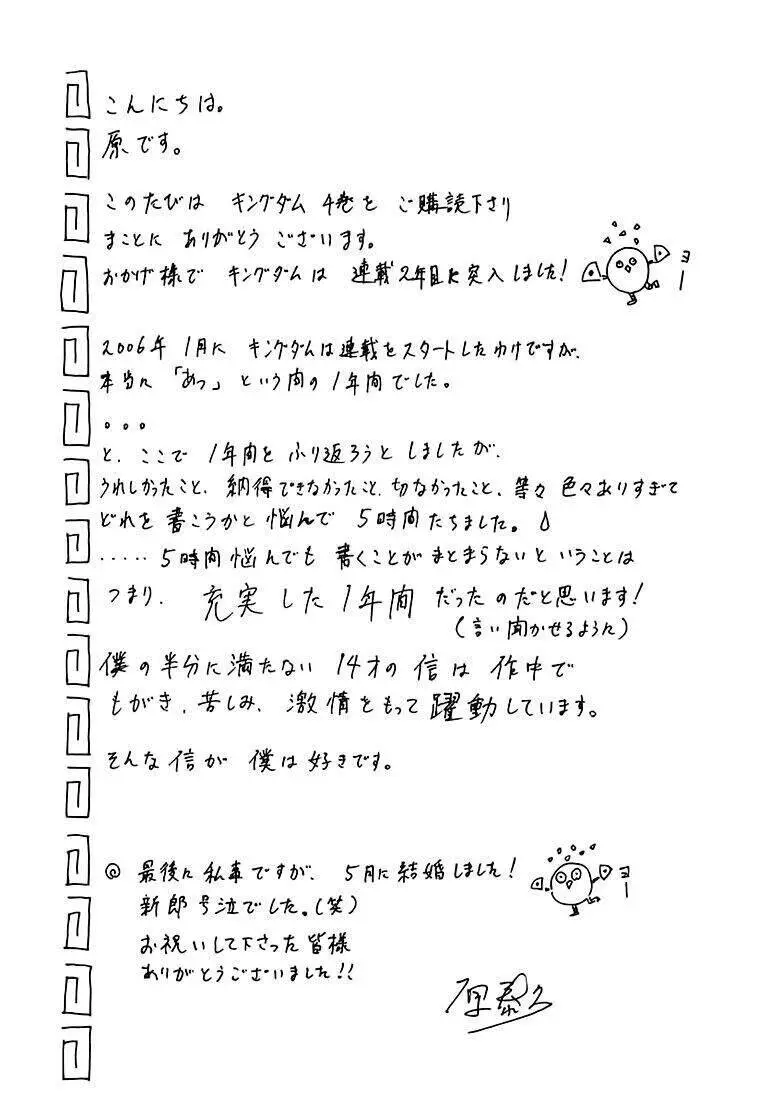 こんにちは。
原です。
このたびは キングダム 4巻を ご購読下さり
まことに ありがとう ございます。
おかげ様で キングダムは 連載2年目に突入しました!
ヨー
2006年 1月に キングダムは連載をスタートしたわけですが、
本当に「あっ」という間の1年間でした。
。。。
と、ここで 1年間を ふり返ろうと しましたが、
うれしかったこと、納得できなかったこと、切なかったこと、等々 色々ありすぎて
どれを 書こうかと 悩んで 5時間たちました。
‥‥‥5時間悩んでも 書くことが まとまらないと いうことは
つまり、充実した1年間 だったのだと思います!
(言い聞かせるように)
僕の半分に満たない 14才の 信は 作中で
もがき、苦しみ、激情をもって躍動しています。
そんな信が 僕は好きです。
@ 最後に私事ですが、5月に結婚しました!
ヨー
新郎号泣でした。(笑)
お祝いして下さった皆様
ありがとうございました!!
原泰久